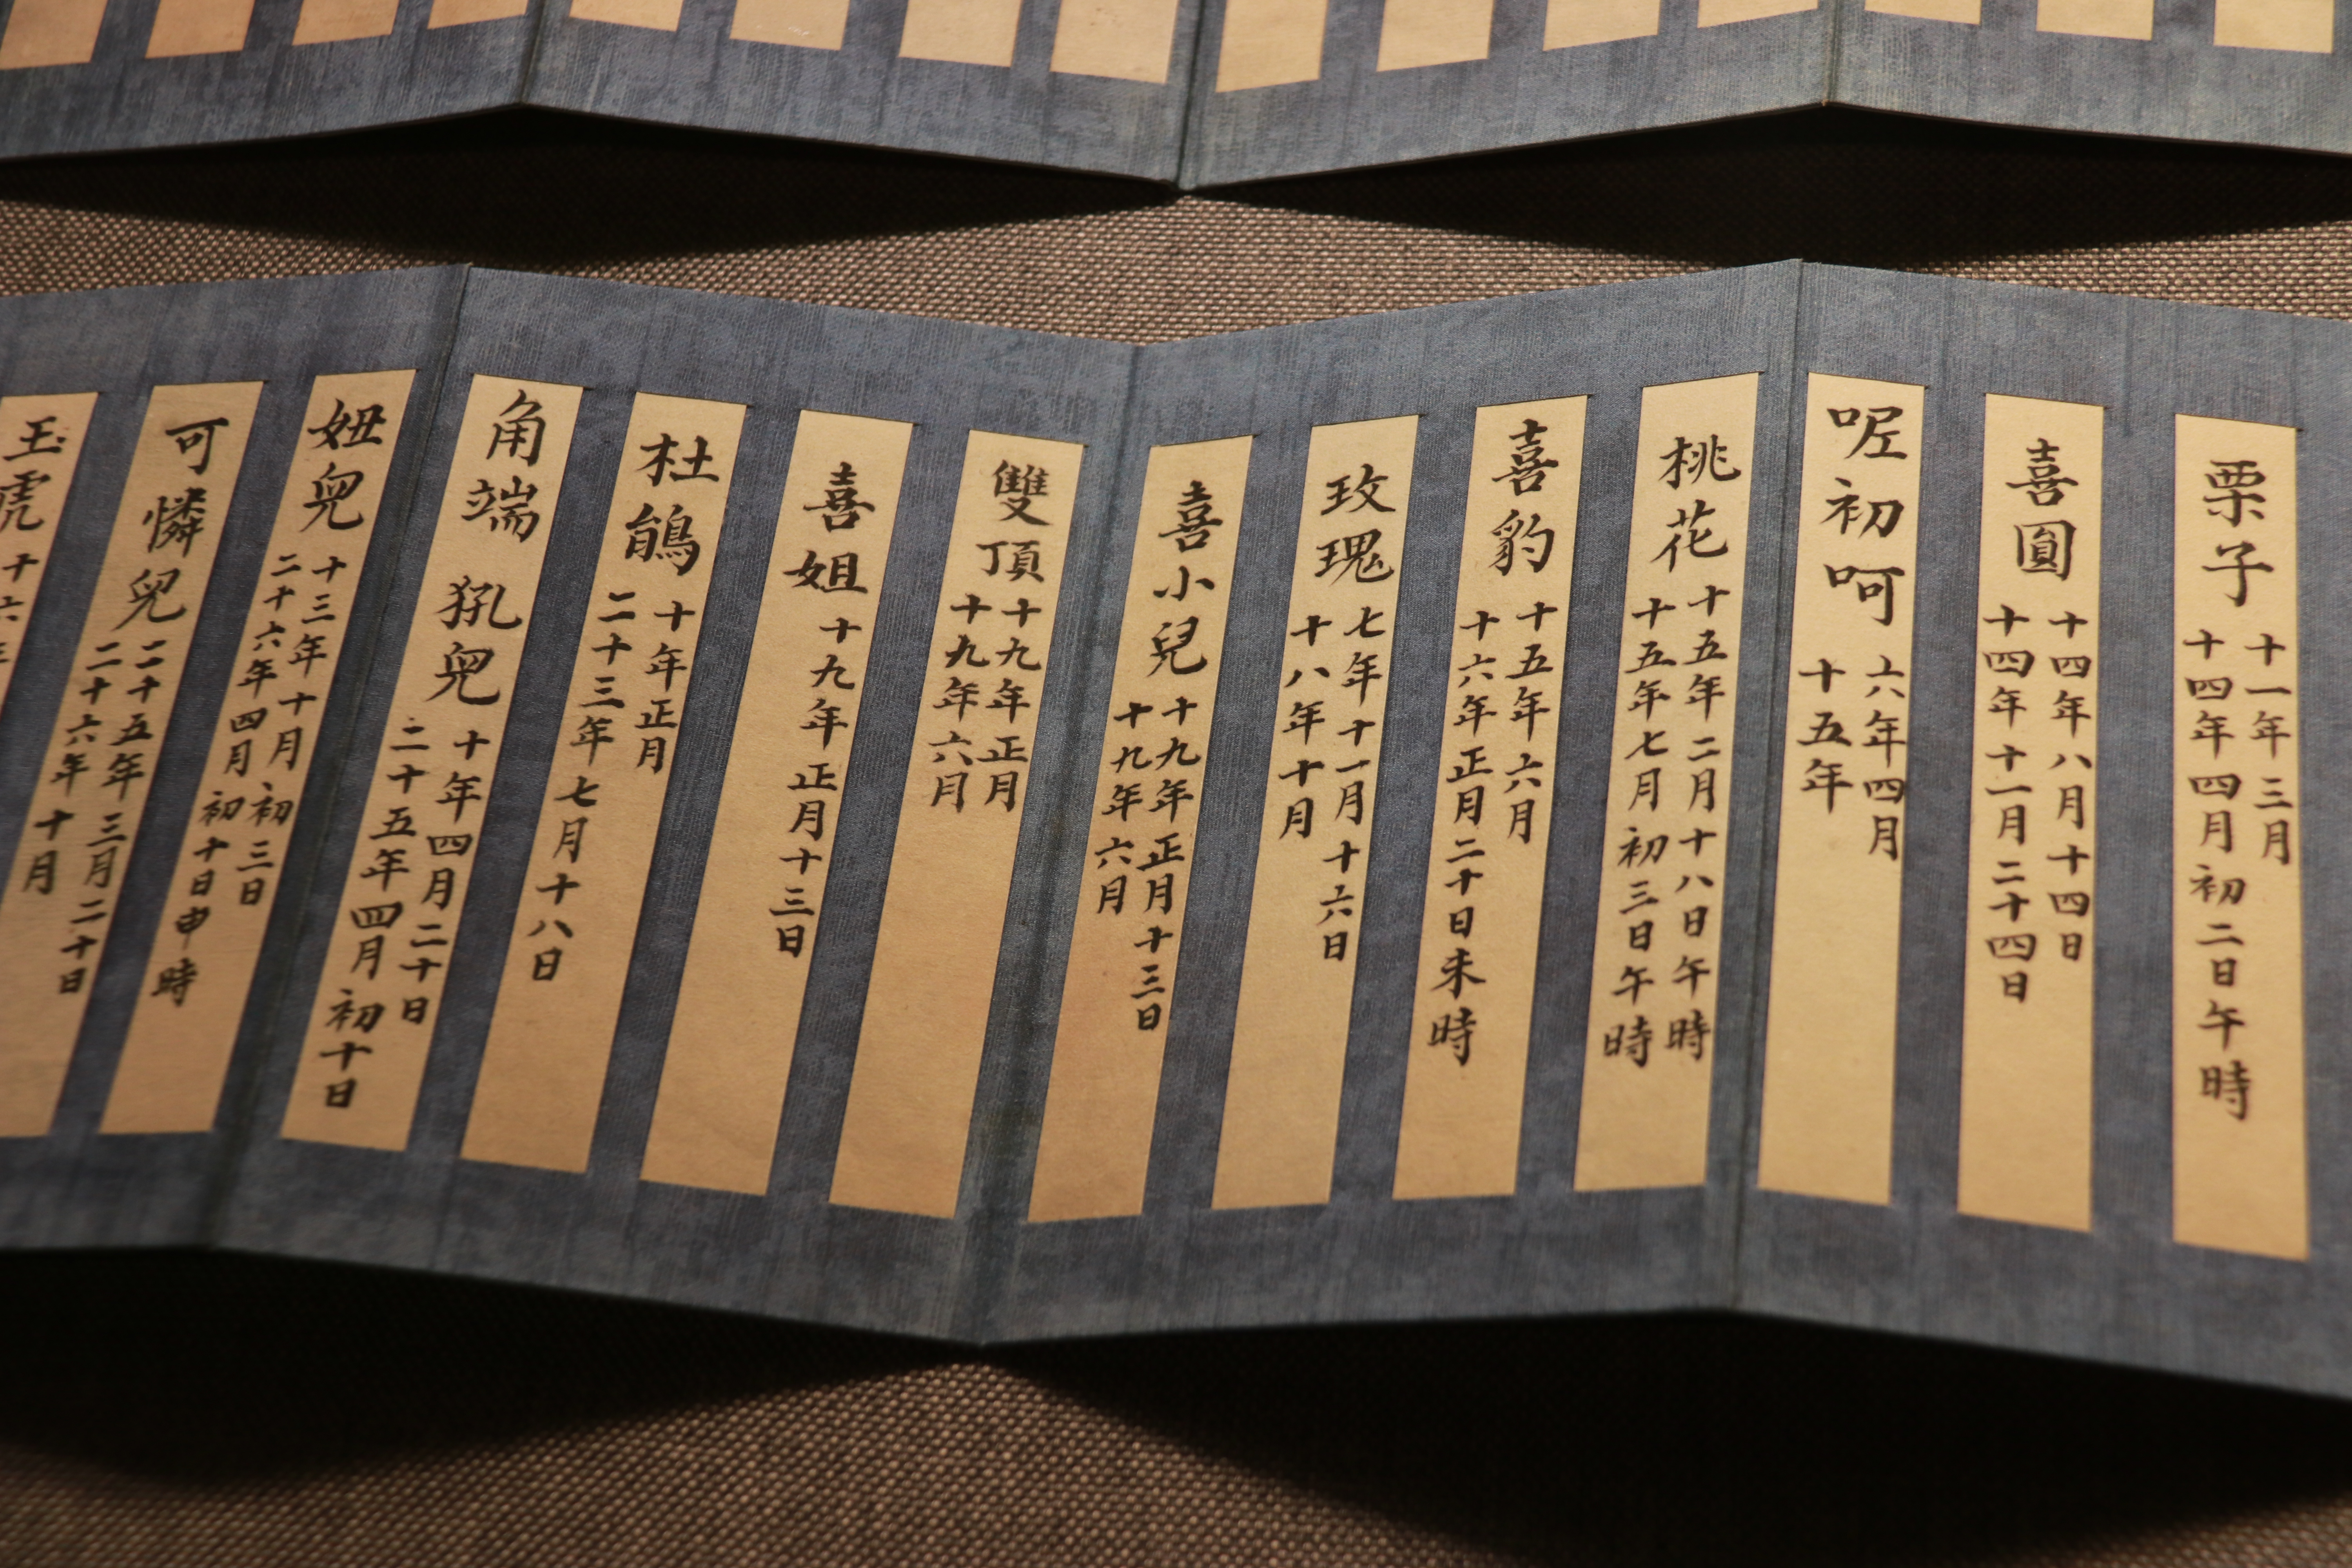 栗子
十一年三月
十四年四月初二日午時
喜圓
十四年八月十四日
十四年十一月二十四日
呢初呵
六年四月
十五年
桃花
十五年二月十八日午時
十五年七月初三日午時
喜豹
十五年六月
十六年正月二十日未時
玫瑰
七年十一月十六日
十八年十月
喜小兒
十九年正月十三日
十九年六月
雙頂
十九年正月
十九年六月
喜姐
十九年正月十三日
杜鵑
十年正月
二十三年七月十八日
角端 犼兒
十年四月二十日
二十五年四月初十日
妞兒
十三年十月初三日
二十六年四月初十日申時
可憐兒
二十五年三月二十日
二十六年十月
玉虎
十六年